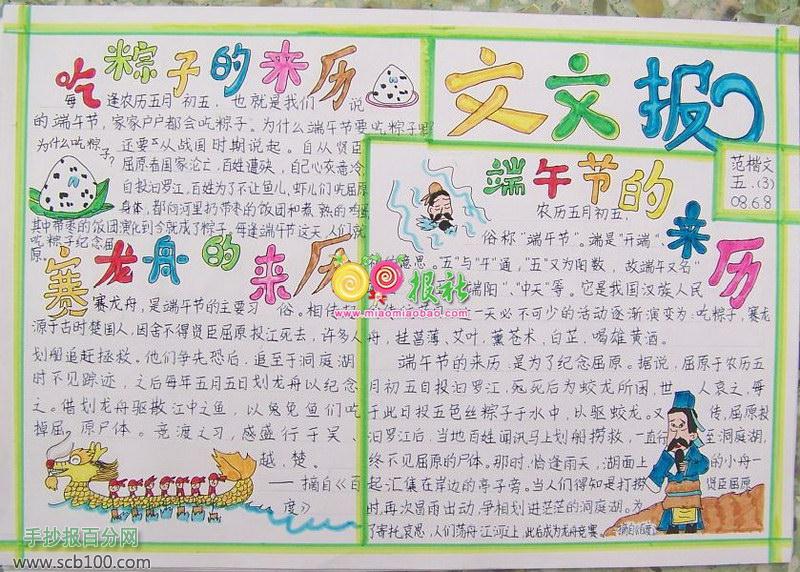 吃粽子的来历
每逢农历五月初五,也就是我们说
的端午节,家家户户都会吃粽子。为什么端午节要吃粽子呢
为什么吃粽子?
还要从战国时期说起。自从贤臣
屈原看国家沦亡,百姓遭殃,自己心灰意冷
自投汨罗江,百姓为了不让鱼儿,虾儿们吃屈原
身体,都向河里扔带枣的饭团和煮熟的鸡蛋
其中带枣的饭团演化到今就成了粽子。每逢端午节这天,人们就
吃粽子纪念屈
原。
赛龙舟的来历
赛龙舟,是端午节的主要习俗。相传起
源于古时楚国人,因舍不得贤臣屈原投江死去,许多人
划船追赶拯救。他们争先恐后,追至于洞庭湖
时不见踪迹,之后每年五月五日划龙舟以纪念
之。借划龙舟驱散江中之鱼,以免鱼们吃
掉屈原尸体。竞渡之习,盛行于吴、
越,楚。
——摘自《百
度》
文文报
范楷文
五.(3)
08.6.8
端午节的来历
农历五月初五,
俗称"端午节"。端是"开端"、
的意思。"五"与"午"通,"五"又为阳数,故端午又名"
端阳"、"中天"等。它是我国汉族人民
一天必不可少的活动逐渐演变为:吃粽子,赛龙
舟,挂菖蒲、艾叶、薰苍术,白芷,喝雄黄酒。
端午节的来历,是为了纪念屈原。据说,屈原于农历五
月初五自投汨罗江,死后为蛟龙所困,世人哀之,每
于此日投五色丝粽子于水中,以驱蛟龙。又传,屈原投
汨罗江后,当地百姓闻讯马上划船捞救,一直行至洞庭湖,
终不见屈原的尸体。那时,恰逢雨天,湖面上的小舟一
起汇集在岸边的亭子旁。当人们得知是打捞贤臣屈原
时,再次冒雨出动,争相划进茫茫的洞庭湖。为
了寄托哀思,人们荡舟江河上,此后成为龙舟竞赛。
报社
www.miaomiaobao.com
手抄报百分网
www.scb100.com